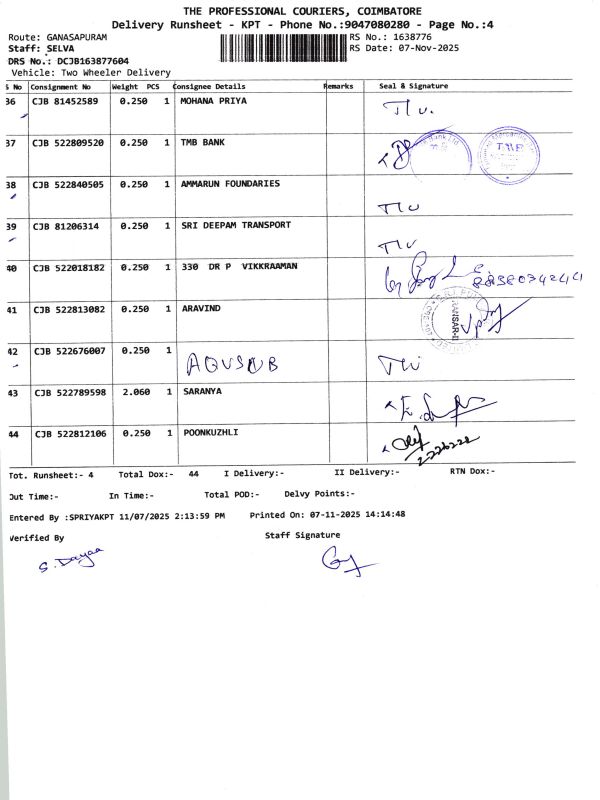 THE PROFESSIONAL COURIERS, COIMBATORE
Delivery Runsheet - KPT - Phone No.:9047080280 - Page No.:4
Route: GANASAPURAM
RS No.: 1638776
Staff: SELVA
RS Date: 07-Nov-2025
DRS No.: DCJB163877604
Vehicle: Two Wheeler Delivery
S No Consignment No Weight PCS Consignee Details Remarks Seal & Signature
36 CJB 81452589 0.250 1 MOHANA PRIYA
37 CJB 522809520 0.250 1 TMB BANK TMB
38 CJB 522840505 0.250 1 AMMARUN FOUNDARIES
39 CJB 81206314 0.250 1 SRI DEEPAM TRANSPORT
40 CJB 522018182 0.250 1 330 DR P VIKKRAAMAN
41 CJB 522813082 0.250 1 ARAVIND
42 CJB 522676007 0.250 1
43 CJB 522789598 2.060 1 SARANYA
44 CJB 522812106 0.250 1 POONKUZHLI
Tot. Runsheet:- 4 Total Dox:- 44 I Delivery:- II Delivery:- RTN Dox:-
Out Time:- In Time:- Total POD:- Delvy Points:-
Entered By :SPRIYAKPT 11/07/2025 2:13:59 PM Printed On: 07-11-2025 14:14:48
Verified By Staff Signature
S. Dayaa